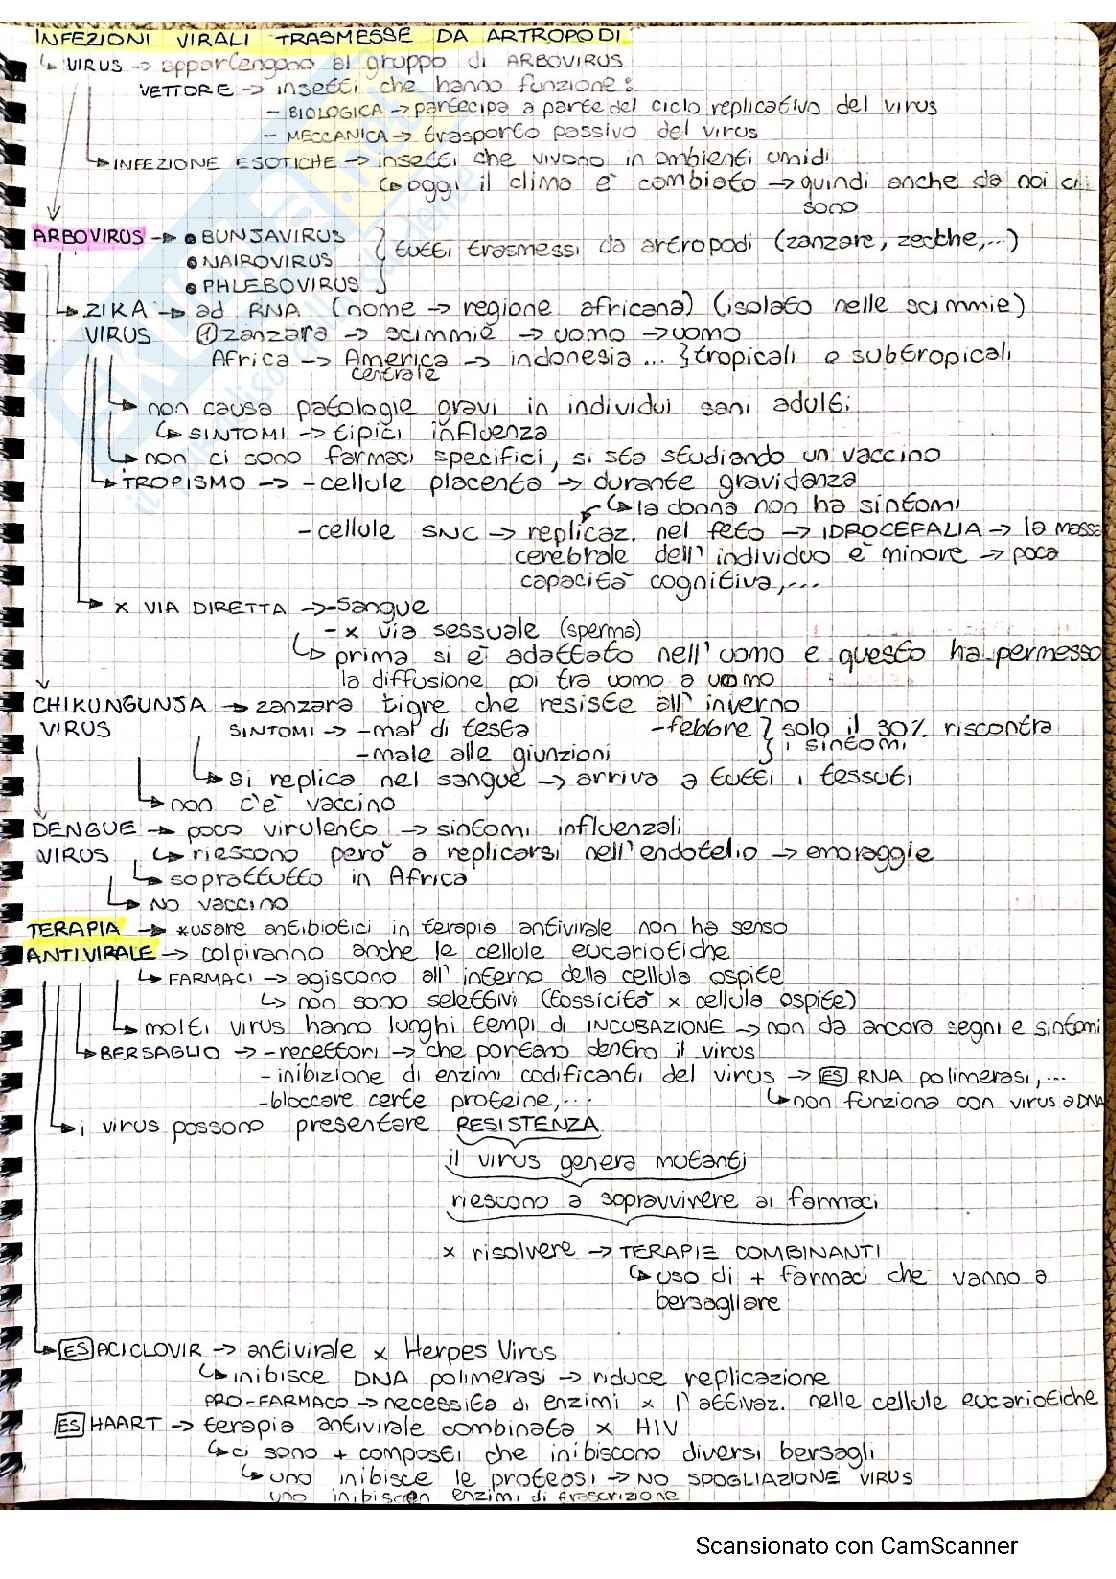 INFEZIONI VIRALI TRASMESSE DA ARTROPODI
↳ VIRUS → appartengono al gruppo di ARBOVIRUS
VETTORE → insetti che hanno funzione:
- BIOLOGICA → partecipa a parte del ciclo replicativo del virus
- MECCANICA → trasporto passivo del virus
↳ INFEZIONE ESOTICHE → insetti che vivono in ambienti umidi
↳ oggi il clima è cambiato → quindi anche da noi ci
sono
ARBOVIRUS → • BUNJAVIRUS
• NAIROVIRUS } tutti trasmessi da artropodi (zanzare, zecche,...)
• PHLEBOVIRUS
↳ ZIKA → ad RNA (nome → regione africana) (isolato nelle scimmie)
VIRUS ① zanzara → scimmie → uomo → uomo
Africa → America → indonesia ... } tropicali o subtropicali
centrale
↳ non causa patologie gravi in individui sani adulti
↳ SINTOMI → tipici influenza
↳ non ci sono farmaci specifici, si sta studiando un vaccino
↳ TROPISMO → - cellule placenta → durante gravidanza
↳ la donna non ha sintomi
- cellule SNC → replicaz. nel feto → IDROCEFALIA → la massa
cerebrale dell'individuo è minore → poca
capacità cognitiva,...
↳ x VIA DIRETTA → - sangue
- x via sessuale (sperma)
↳ prima si è adattato nell'uomo e questo ha permesso
la diffusione poi tra uomo a uomo
CHIKUNGUNJA → zanzara tigre che resiste all'inverno
VIRUS SINTOMI → - mal di testa - febbre } solo il 30% riscontra
- male alle giunzioni } i sintomi
↳ si replica nel sangue → arriva a tutti i tessuti
↳ non c'è vaccino
DENGUE → poco virulento → sintomi influenzali
VIRUS ↳ riescono però a replicarsi nell'endotelio → emoraggie
↳ soprattutto in Africa
↳ NO vaccino
TERAPIA → * usare antibiotici in terapia antivirale non ha senso
ANTIVIRALE → colpiranno anche le cellule eucariotiche
↳ FARMACI → agiscono all'interno della cellula ospite
↳ non sono selettivi (tossicità x cellula ospite)
↳ molti virus hanno lunghi tempi di INCUBAZIONE → non da ancora segni e sintomi
↳ BERSAGLIO → - recettori → che portano dentro il virus
- inibizione di enzimi codificanti del virus → ES RNA polimerasi,...
- bloccare certe proteine,... ↳ non funziona con virus a DNA
↳ i virus possono presentare RESISTENZA
il virus genera mutanti
riescono a sopravvivere ai farmaci
x risolvere → TERAPIE COMBINANTI
↳ uso di + farmaci che vanno a
bersagliare
↳ ES ACICLOVIR → antivirale x Herpes Virus
↳ inibisce DNA polimerasi → riduce replicazione
PRO-FARMACO → necessita di enzimi x l'attivaz. nelle cellule eucariotiche
ES HAART → terapia antivirale combinata x HIV
↳ ci sono + composti che inibiscono diversi bersagli
↳ uno inibisce le proteasi → NO SPOGLIAZIONE VIRUS
uno inibiscen enzimi di trascrizione
Scansionato con CamScanner